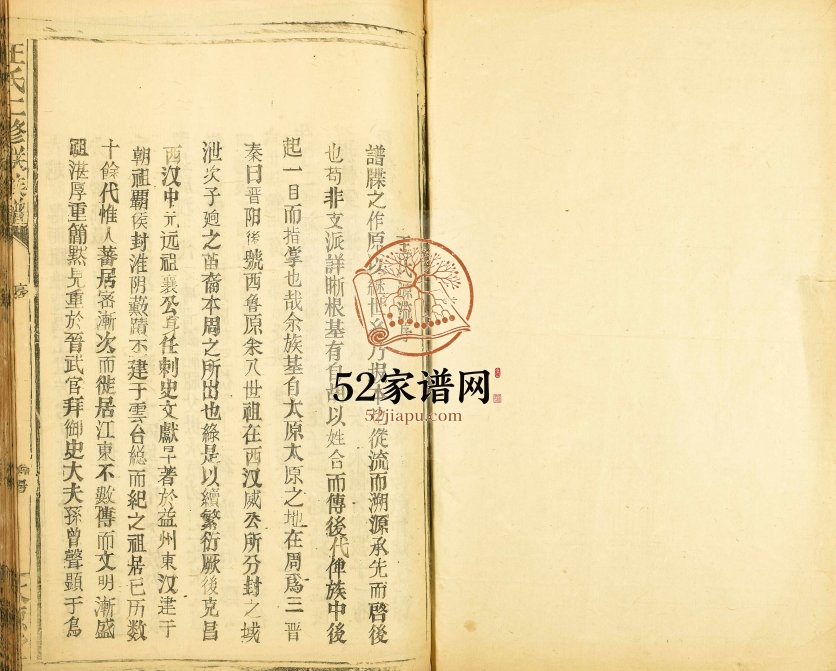 譜牒之作原以 世 乃 從流而溯源承先而啓後
也苟非支派詳晰根基有自 以姓合而傳後代俾族中後
起一目而指掌也哉余族基自太原太原之地在周爲三晋
秦曰晋阳後號西魯原 八世祖在西汉威公所分封之域
泄次子廹之苗裔本周之所出也綠是以續繁衍厥後克昌
西汉中元远祖襄公身任刺史文獻早著於益州東汉建于
朝祖覇侯封淮阴 蹟不建于雲台総而紀之祖居已历数
十餘代惟人蕃居密漸次而徙居江東不數傳而文明漸盛
祖湛厚重簡黙見重於晉武官拜御史大夫孫曾聲顯于烏
氏二修 族譜
序
52家谱网
52jiapu.com